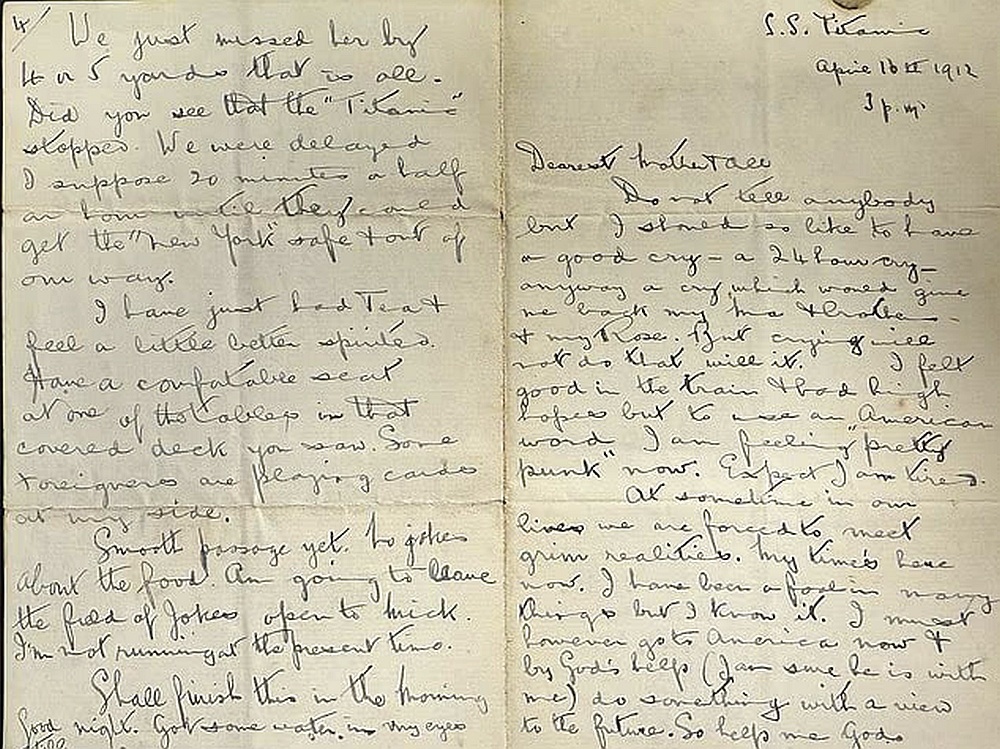 4/
We just missed her by
4 or 5 yards that is all.
Did you see that the "Titanic"
stopped. We were delayed
I suppose 20 minutes a half
an hour until they could
get the "New York" safe & out of
our way.
I have just had Tea &
feel a little better spirited.
Have a comfortable seat
at one of the tables in that
covered deck you saw. Some
Foreigners are playing cards
at my side.
Smooth passage yet. No jokes
about the food. Am going to leave
the field of Jokes open to Mick.
I'm not running at the present time.
Shall finish this in the morning
Good night. Got some water in my eyes
still
S.S. Titanic
April 10th 1912
3 p.m.
Dearest Mother & all
Do not tell anybody
but I should so like to have
a good cry – a 24 hour cry –
anyway a cry which would give
me back my Ma & brothers
& my Rose. But crying will
not do that will it. I felt
good in the train & had high
hopes but to use an American
word I am feeling "pretty
punk" now. Expect I am tired.
At sometime in our
lives we are forced to meet
grim realities. My time's here
now. I have been a fool in many
things but I know it. I must
however go to America now &
by God's help (I am sure he is with
me) do something with a view
to the future. So help me God.